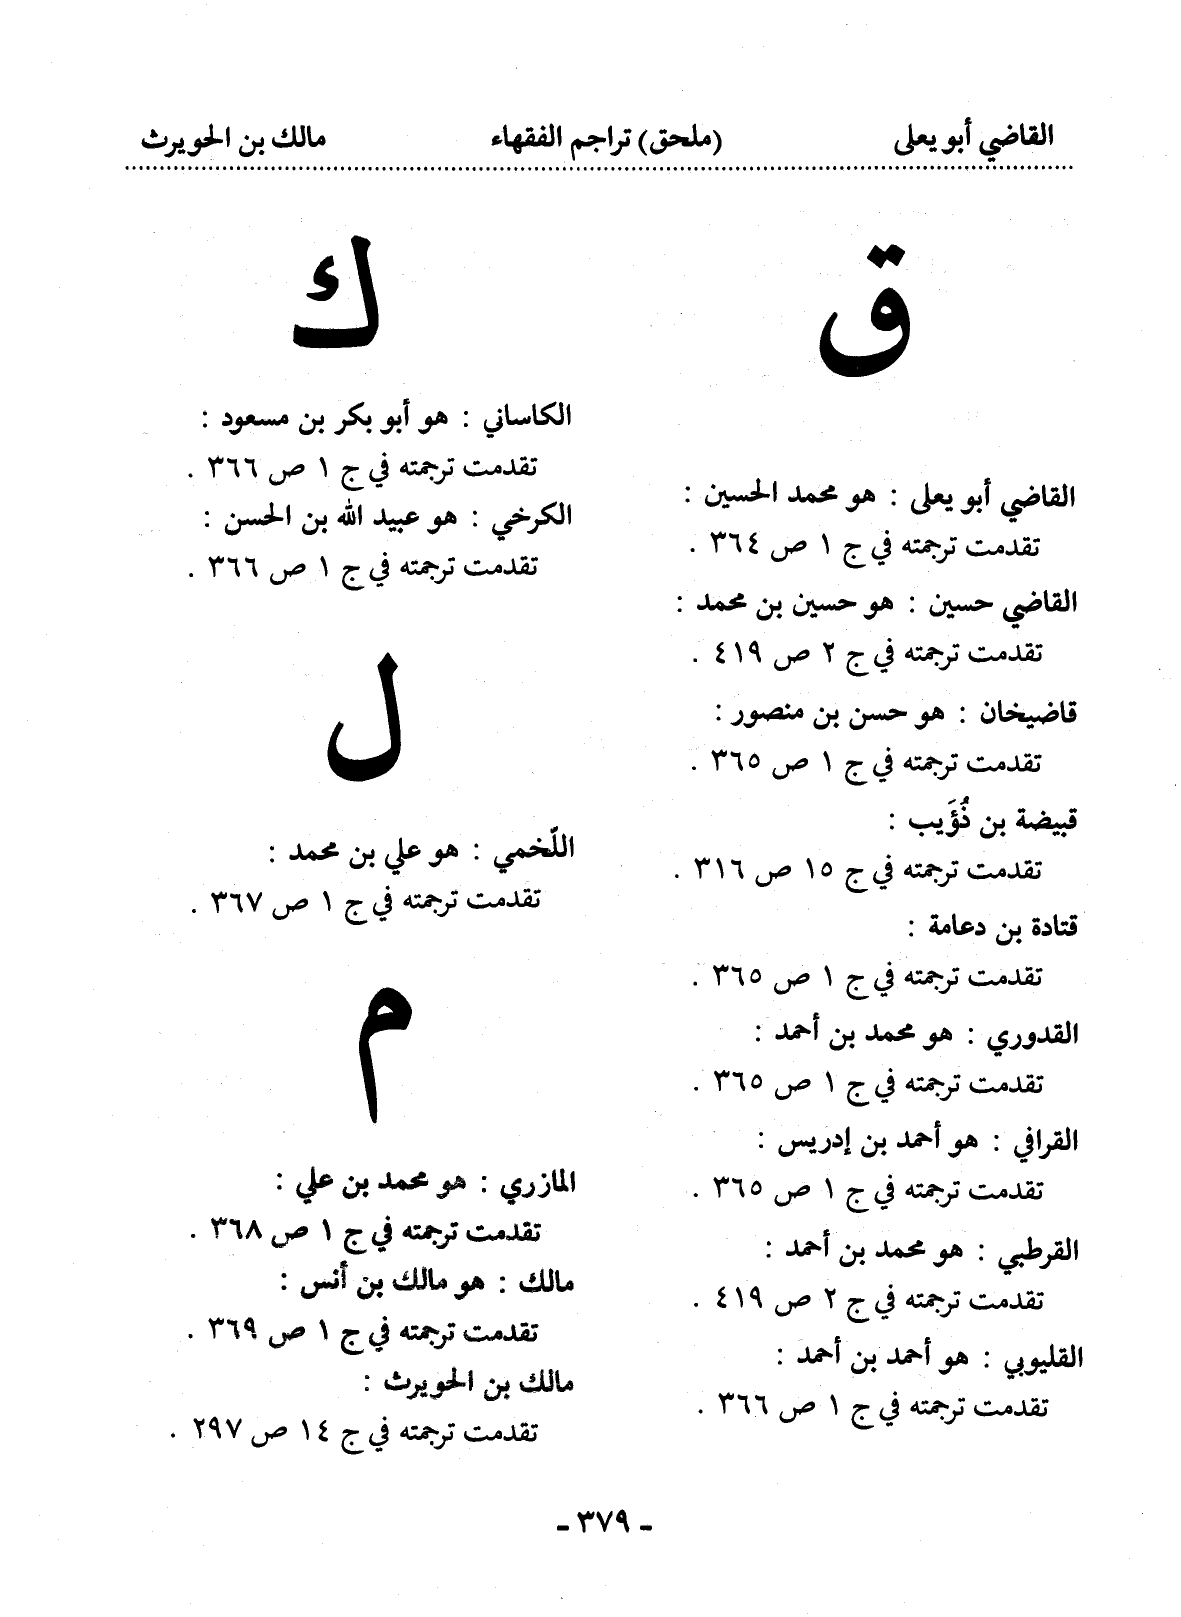 القاضي أبو يعلى (ملحق) تراجم الفقهاء مالك بن الحويرث
ق
القاضي أبو يعلى : هو محمد الحسين :
تقدمت ترجمته في ج ١ ص ٣٦٤ .
القاضي حسين : هو حسين بن محمد :
تقدمت ترجمته في ج ٢ ص ٤١٩ .
قاضيخان : هو حسن بن منصور :
تقدمت ترجمته في ج ١ ص ٣٦٥ .
قبيضة بن ذُؤَيب :
تقدمت ترجمته في ج ١٥ ص ٣١٦ .
قتادة بن دعامة :
تقدمت ترجمته في ج ١ ص ٣٦٥ .
القدوري : هو محمد بن أحمد :
تقدمت ترجمته في ج ١ ص ٣٦٥ .
القرافي : هو أحمد بن إدريس :
تقدمت ترجمته في ج ١ ص ٣٦٥ .
القرطبي : هو محمد بن أحمد :
تقدمت ترجمته في ج ٢ ص ٤١٩ .
القليوبي : هو أحمد بن أحمد :
تقدمت ترجمته في ج ١ ص ٣٦٦ .
ك
الكاساني : هو أبو بكر بن مسعود :
تقدمت ترجمته في ج ١ ص ٣٦٦ .
الكرخي : هو عبيد الله بن الحسن :
تقدمت ترجمته في ج ١ ص ٣٦٦ .
ل
اللّخمي : هو علي بن محمد :
تقدمت ترجمته في ج ١ ص ٣٦٧ .
م
المازري : هو محمد بن علي :
تقدمت ترجمته في ج ١ ص ٣٦٨ .
مالك : هو مالك بن أنس :
تقدمت ترجمته في ج ١ ص ٣٦٩ .
مالك بن الحويرث :
تقدمت ترجمته في ج ١٤ ص ٢٩٧ .
- ٣٧٩ -